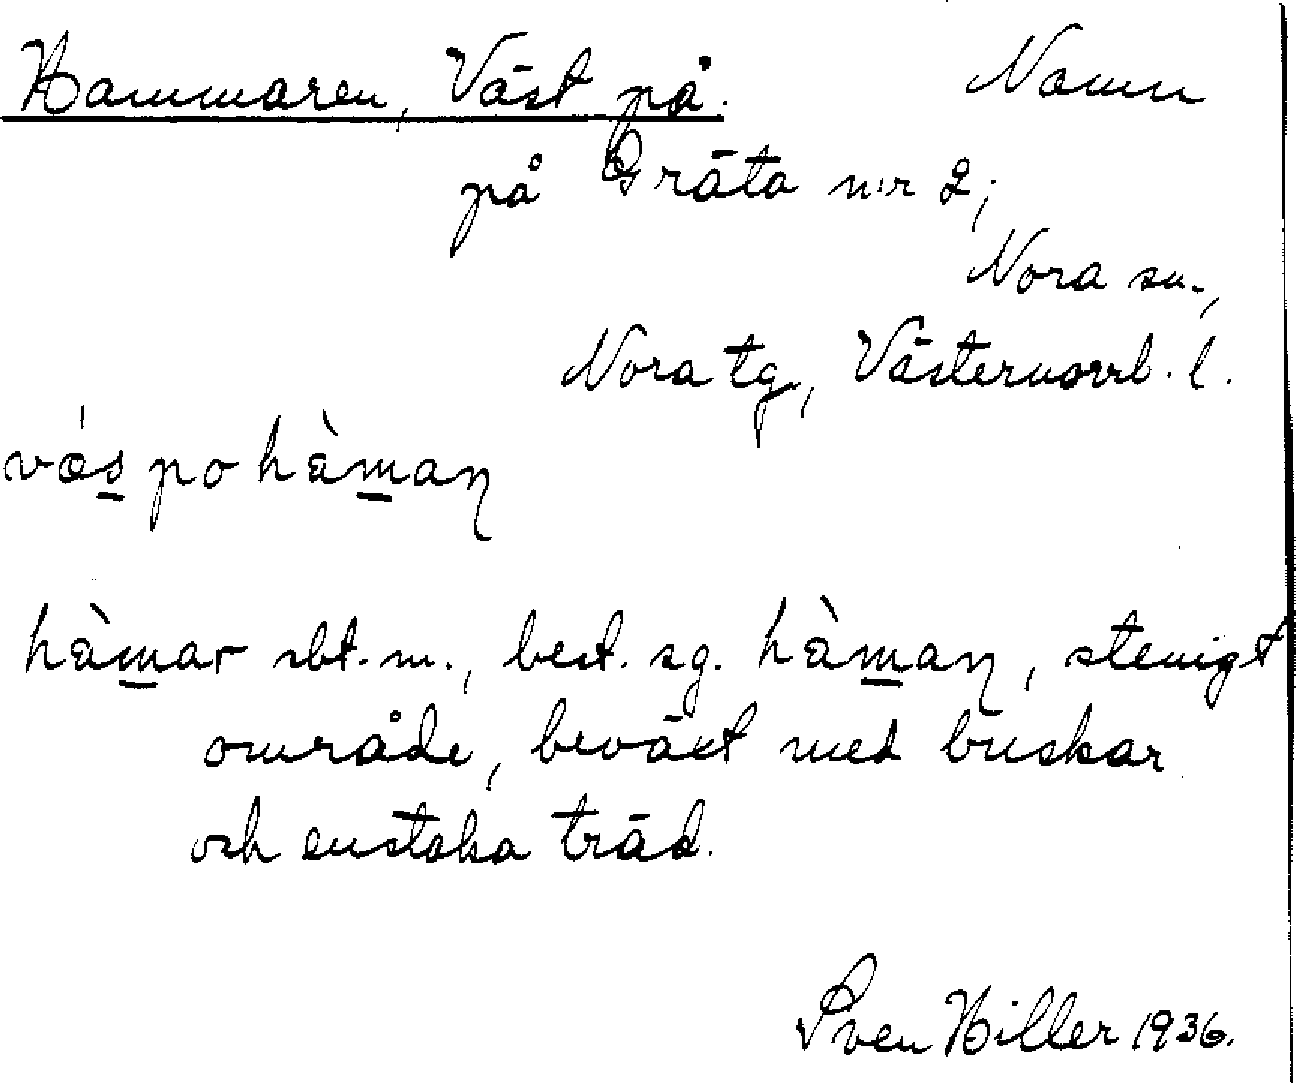 Hammaren, Väst på. Namn
på Gräta n:r 2;
Nora sn.,
Nora tg., Västernorrl. l.
vǽs po hàmaɳ
hàmar sbt. m., best. sg. hàmaɳ, stenigt
område, beväxt med buskar
och enstaka träd.
Sven Hiller 1936.